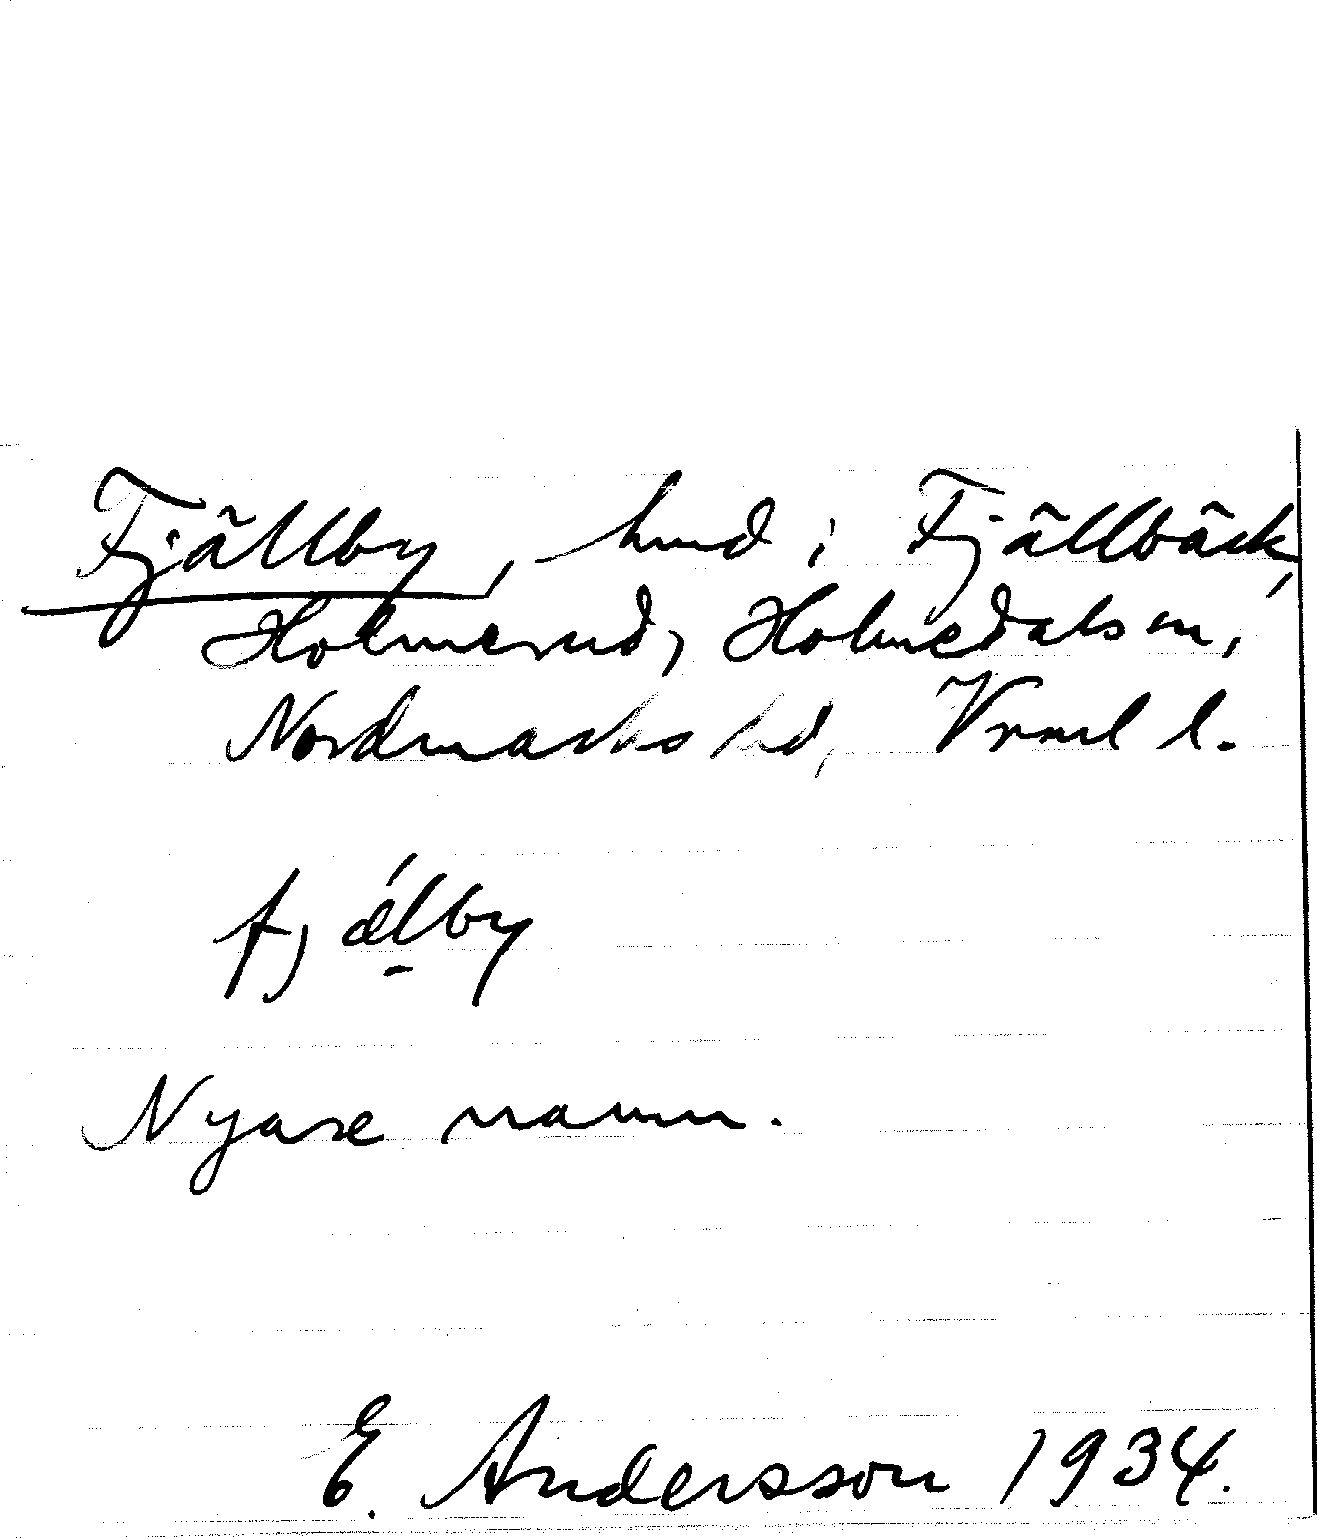 Fjällby, hmd i Fjällbäck,
Holmerud, Holmedals sn,
Nordmarks hd, Vrml l.
fjä́lby
Nyare namn.
E. Andersson 1934.